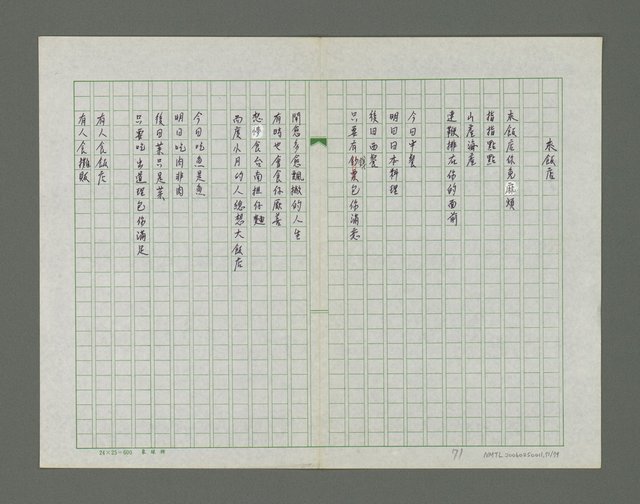 來飯店
來飯店你免麻煩
指指點點
山產海產
連鞭排在你的面前
今日中餐
明日日本料理
後日西餐
只要有鈔票包你滿意
閒愈多愈飄撇的人生
有時也會食仔厭善
想食台南担仔麵
而度小月的人總想大飯店
今日吃魚是魚
明日吃肉非肉
後日菜只是菜
只要吃出道理包你滿足
有人食飯店
有人食攤販
24×25=600
71
NMTL20060250011,71/79